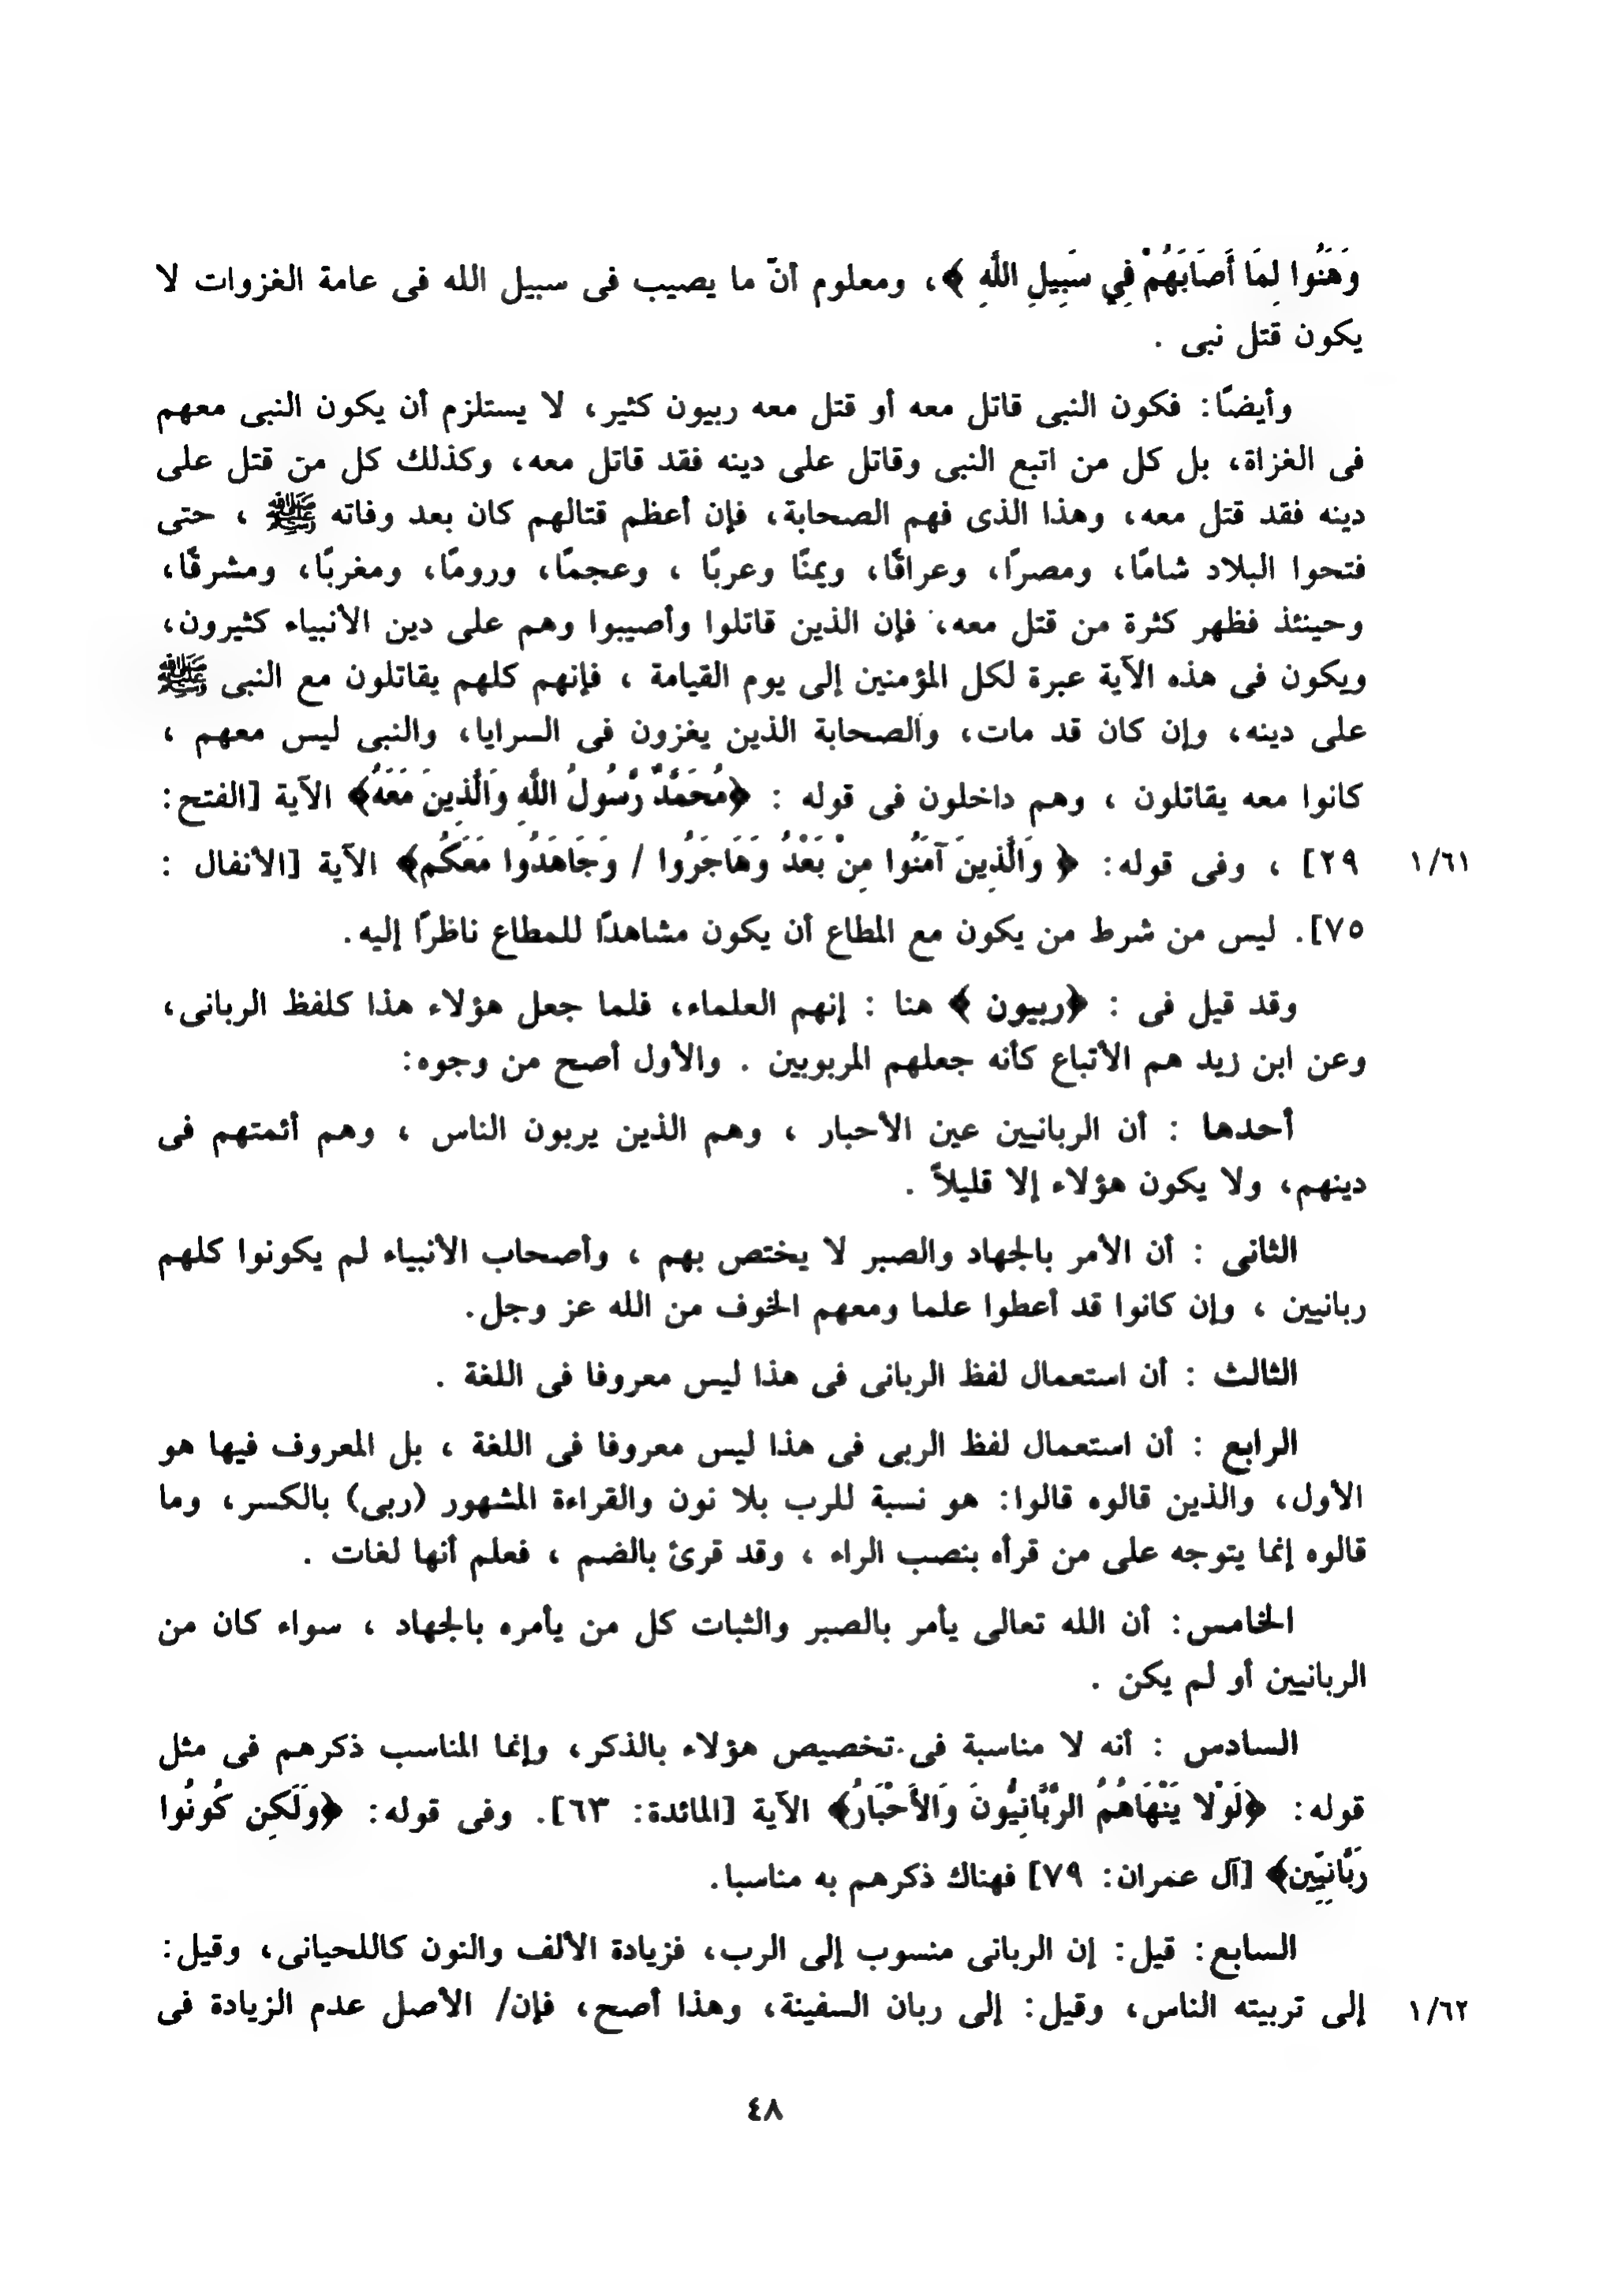 وَهَنُوا لِمَا أَصَابَهُمْ فِي سَبِيلِ اللَّهِ ﴾، ومعلوم أنّ ما يصيب فى سبيل الله فى عامة الغزوات لا
يكون قتل نبى .
وأيضًا: فكون النبى قاتل معه أو قتل معه ربيون كثير، لا يستلزم أن يكون النبى معهم
فى الغزاة، بل كل من اتبع النبى وقاتل على دينه فقد قاتل معه، وكذلك كل من قتل على
دينه فقد قتل معه، وهذا الذى فهم الصحابة، فإن أعظم قتالهم كان بعد وفاته ﷺ ، حتى
فتحوا البلاد شامًا، ومصرًا، وعراقًا، ويمنًا وعربًا ، وعجمًا، ورومًا، ومغربًا، ومشرقًا،
وحينئذ فظهر كثرة من قتل معه، فإن الذين قاتلوا وأصيبوا وهم على دين الأنبياء كثيرون،
ويكون فى هذه الآية عبرة لكل المؤمنين إلى يوم القيامة ، فإنهم كلهم يقاتلون مع النبى ﷺ
على دينه، وإن كان قد مات، والصحابة الذين يغزون فى السرايا، والنبى ليس معهم ،
كانوا معه يقاتلون ، وهم داخلون فى قوله : ﴿مُحَمَّدٌ رَّسُولُ اللَّهِ وَالَّذِينَ مَعَهُ﴾ الآية [الفتح:
٢٩] ، وفى قوله: ﴿ وَالَّذِينَ آمَنُوا مِنْ بَعْدُ وَهَاجَرُوا / وَجَاهَدُوا مَعَكُم﴾ الآية [الأنفال : ١/٦١
٧٥]. ليس من شرط من يكون مع المطاع أن يكون مشاهدًا للمطاع ناظرًا إليه.
وقد قيل فى : ﴿ربيون ﴾ هنا : إنهم العلماء، فلما جعل هؤلاء هذا كلفظ الربانى،
وعن ابن زيد هم الأتباع كأنه جعلهم المربوبين . والأول أصح من وجوه:
أحدها : أن الربانيين عين الأحبار ، وهم الذين يربون الناس ، وهم أئمتهم فى
دينهم، ولا يكون هؤلاء إلا قليلاً .
الثانى : أن الأمر بالجهاد والصبر لا يختص بهم ، وأصحاب الأنبياء لم يكونوا كلهم
ربانيين ، وإن كانوا قد أعطوا علما ومعهم الخوف من الله عز وجل.
الثالث : أن استعمال لفظ الربانى فى هذا ليس معروفا فى اللغة .
الرابع : أن استعمال لفظ الربى فى هذا ليس معروفا فى اللغة ، بل المعروف فيها هو
الأول، والذين قالوه قالوا: هو نسبة للرب بلا نون والقراءة المشهور (ربى) بالكسر، وما
قالوه إنما يتوجه على من قرأه بنصب الراء ، وقد قرئ بالضم ، فعلم أنها لغات .
الخامس: أن الله تعالى يأمر بالصبر والثبات كل من يأمره بالجهاد ، سواء كان من
الربانيين أو لم يكن .
السادس : أنه لا مناسبة فى تخصيص هؤلاء بالذكر، وإنما المناسب ذكرهم فى مثل
قوله: ﴿لَوْلا يَنْهَاهُمُ الرَّبَّانِيُّونَ وَالأَحْبَارُ﴾ الآية [المائدة: ٦٣]. وفى قوله: ﴿وَلَكِن كُونُوا
رَبَّانِيِّين﴾ [آل عمران: ٧٩] فهناك ذكرهم به مناسبا.
السابع: قيل: إن الربانى منسوب إلى الرب، فزيادة الألف والنون كاللحيانى، وقيل:
إلى تربيته الناس، وقيل: إلى ربان السفينة، وهذا أصح، فإن/ الأصل عدم الزيادة فى ١/٦٢
٤٨